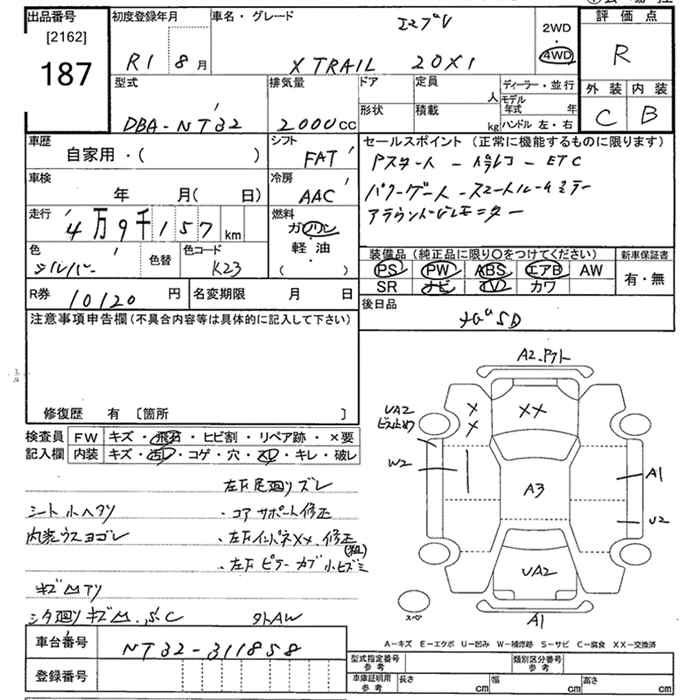 出品番号
[2162]
187
初度登録年月
R1 8月
車名・グレード
X TRAIL 20X1
2WD
・
4WD
評価点
R
外装 内装
C B
型式
DBA-NT32
排気量
2000cc
ドア
形状
定員 人
積載 kg
ディーラー・並行
モデル年式 年
ハンドル 左・右
車歴
自家用・( )
シフト
FAT
セールスポイント (正常に機能するものに限ります)
Pスタート - ドラレコ - ETC
パワーゲート - スマートルームミラー
アラウンドビューモニター
車検
年 月( 日)
冷房
AAC
走行
4万9千157km
燃料
ガソリン
軽・油
( )
色
シルバー
色替
色コード
K23
装備品 (純正品に限り〇をつけてください)
PS PW ABS エアB AW
SR ナビ TV カワ
新車保証書
有・無
R券 10120円
名変期限 月 日
後日品
ナビSD
注意事項申告欄 (不具合内容等は具体的に記入して下さい)
修復歴 有 [箇所 ]
検査員記入欄
FW キズ・飛石・ヒビ割・リペア跡・×要
内装 キズ・汚レ・コゲ・穴・スレ・キレ・破レ
左下尾廻りズレ
シート小ヘタリ ・コアサポート修正
内装ウスヨゴレ ・左FインパネXX、修正
・左Fピラーカブ小ヒズミ
キズ凹アリ
シタ廻りキズ凹、S、C タトAW
車台番号 NT32-311858
登録番号
A2
××
×
×
UA2
ビス止め
W2
A3
A1
U2
UA2
スペア
A1
A-キズ E-エクボ U-凹み W-補修跡 S-サビ C-腐食 XX-交換済
型式指定番号 参考
類別区分番号 参考
車庫証明用 参考
長さ cm
幅 cm
高さ cm